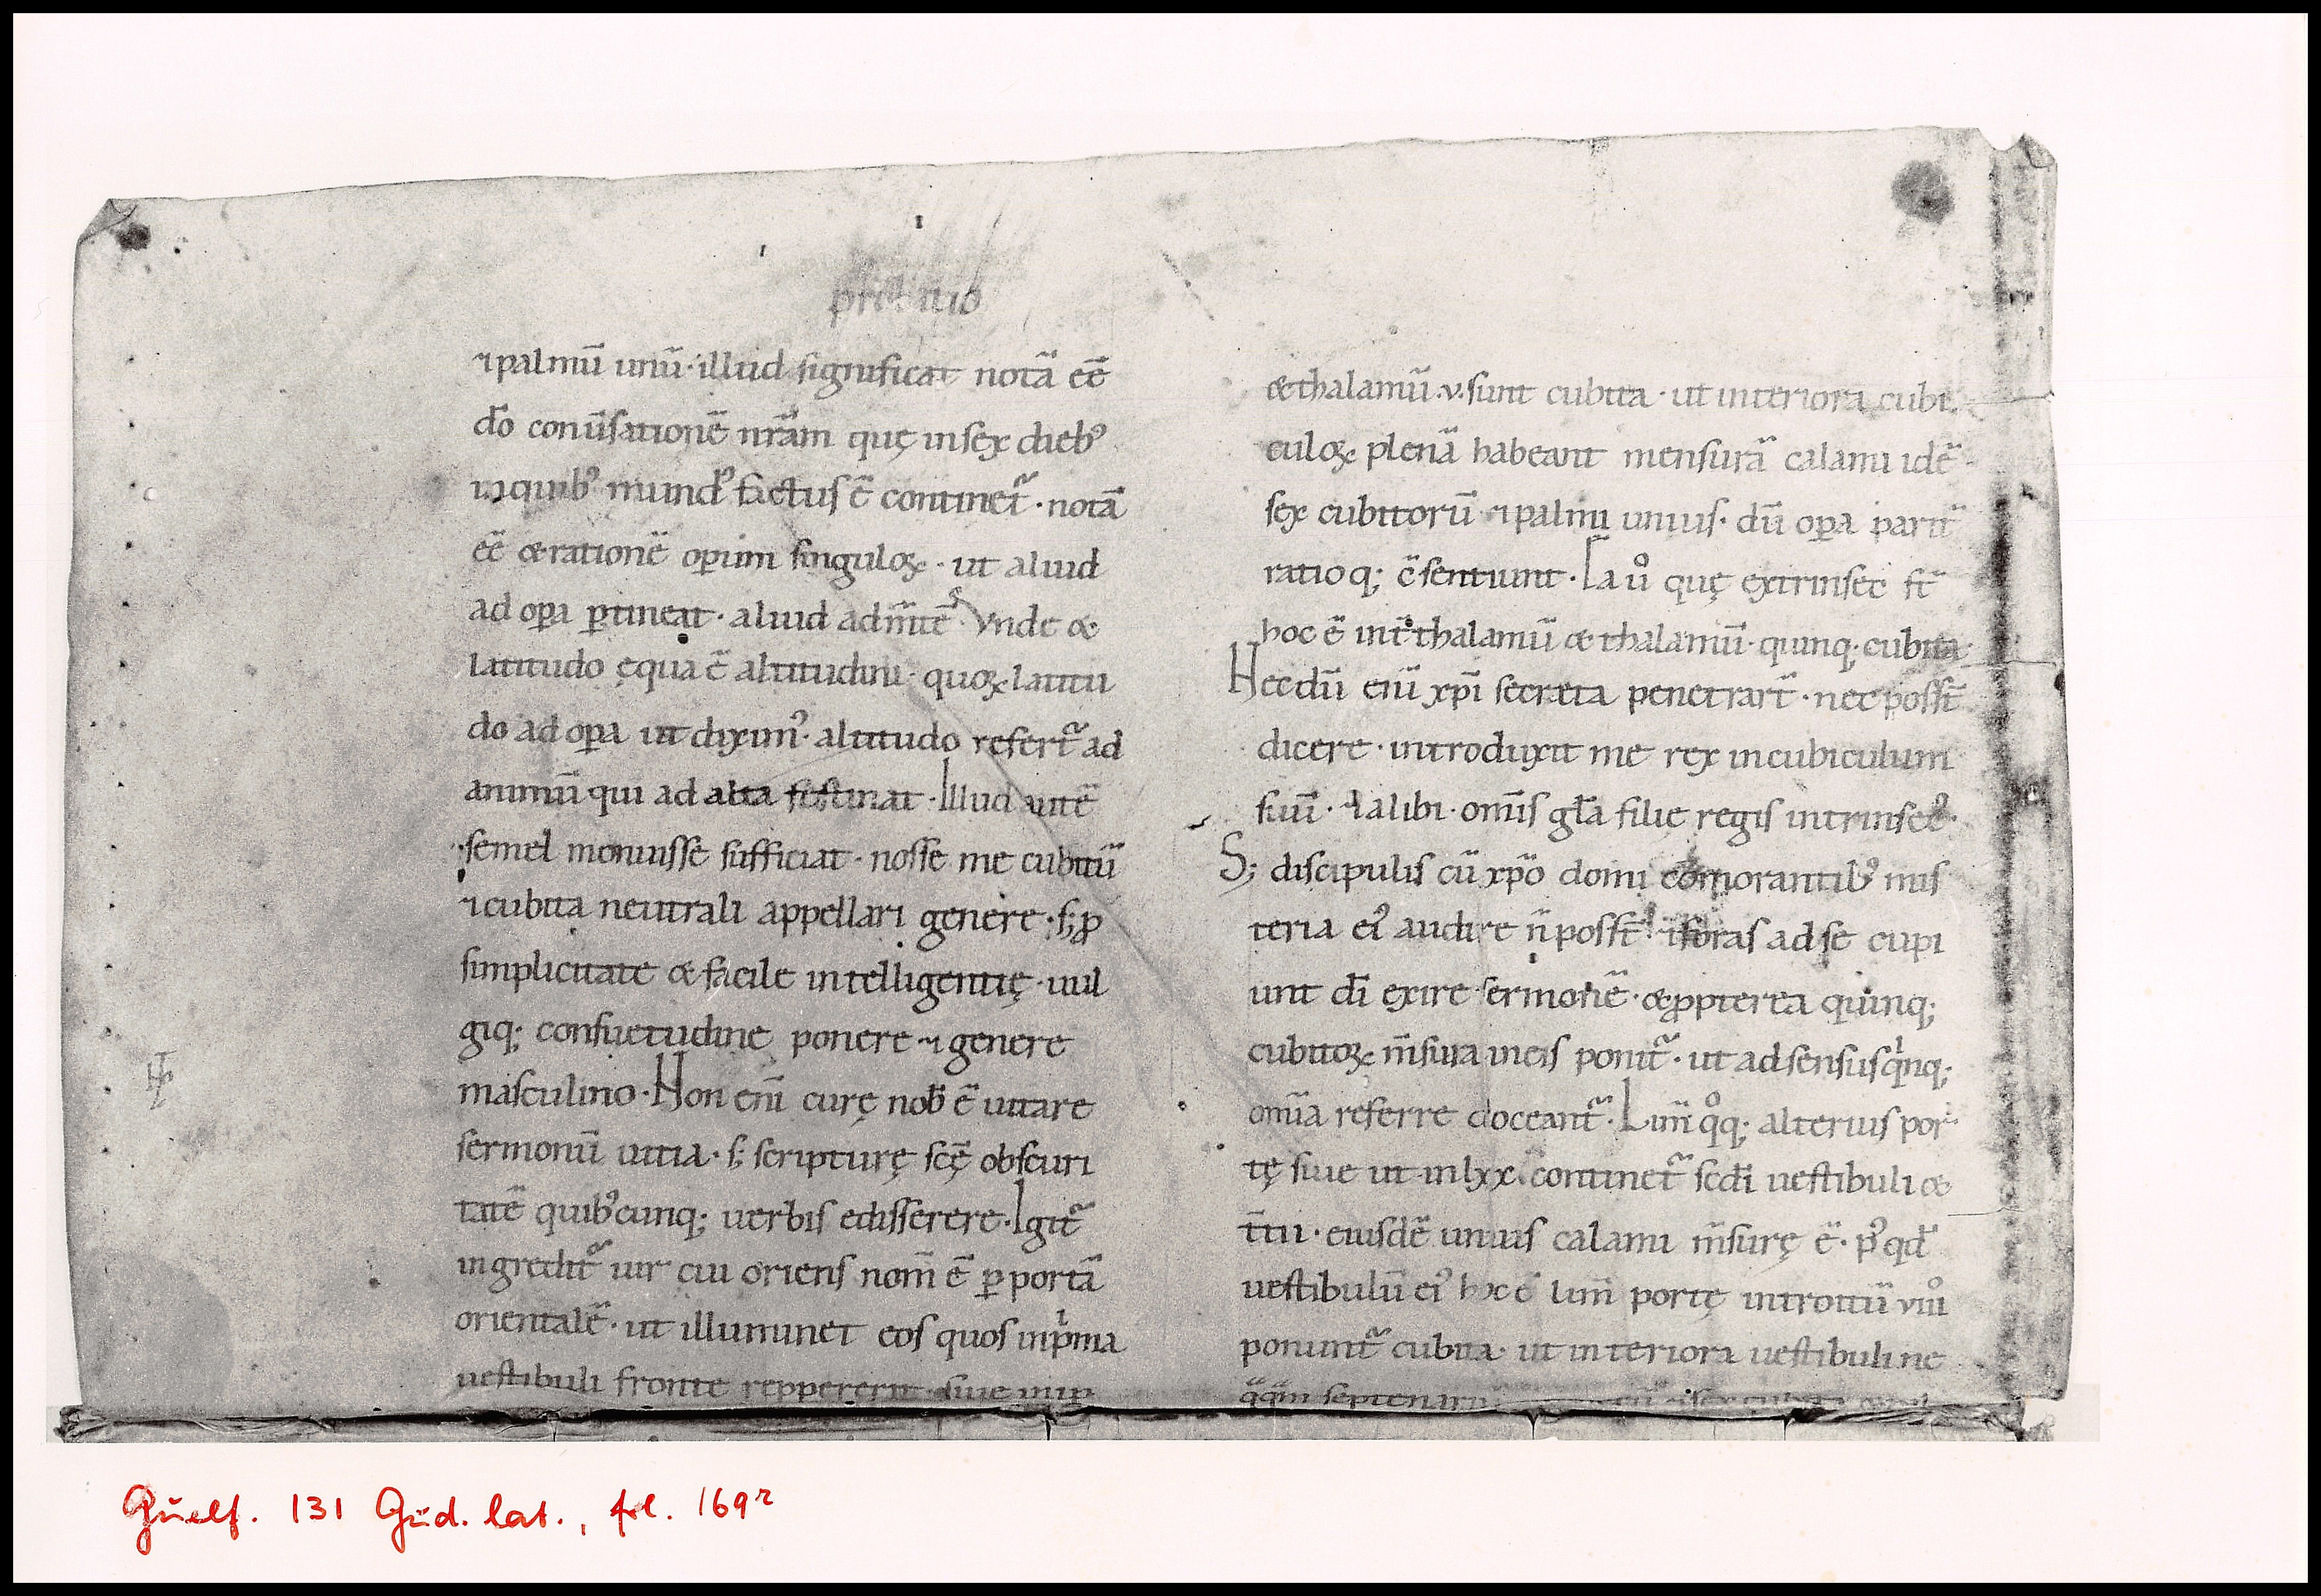 ⁊palmū unū· illud significat notā eē
dō conūsationē nr̄am quę insex dieb᷒
inquib᷒ mund᷒ factus ē continet᷑ · notā
eē & rationē op̄um singuloꝝ · ut aliud
ad op̄a ꝑtineat · aliud adm̄tē · Vnde &
latitudo ęqua ē altitudini · quoꝝ latitu
do ad op̄a ut dixim᷒ · altitudo refert᷑ ad
animū qui ad alta festinat · Illud autē
semel monuisse sufficiat · nosse me cubitū
⁊cubita neutrali appellari genere · s; ꝓ
simplicitate & facile intelligentię · uul
giq; consuetudine ponere ⁊ genere
masculino · Non enī curę nob̄ ē uitare
sermonū uitia · s; scripturę scę̄ obscuri
tatē quib᷒cunq; uerbis edisserere · Igit᷑
ingredit᷑ uir cui oriens nom̄ ē ꝑ portā
orientalē · ut illuminet eos quos inp̍ma
uestibuli fronte reppererit siue
&thalamū .v. sunt cubita · ut interiora cubi
culoꝝ plenā habeant mensurā calami idē
sex cubitorū ⁊palmi unius · dū op̄a parit᷑
ratioq; c̄sentiunt · Ea uͦ quę extrinsec s̄t
hoc ē int̄ thalamū & thalamū · quinq; cubita
Necdū enī xp̄i secreta penetrart̄ · nec poss̄t
dicere · introduxit me rex incubiculum
suū · ⁊alibi · omīs gl̄a filie regis intrinsec᷒
S; discipulis cū xp̄o domi com̄orantib᷒ mis
teria ei᷒ audire n̄ poss̄t foras ad se cupi
unt dī exire sermonē · & ꝓpterea quinq;
cubitoꝝ m̄sura ineis ponit᷑ · ut ad sensus q̍nq;
omīa referre doceant᷑ · Lim̄ qͦq; alterius por
tę siue ut inlxx continet᷑ sedī uestibuli &
t̄tii · eiusdē unius calami m̄surę ē · p᷒ qd̄
uestibulū ei᷒ hoc ē lim̄ portę introitū viiı̊
ponunt᷑ cubita · ut interiora uestibuli ne
q̄q̄m
Guelf. 131 Gud. lat., fol. 169r